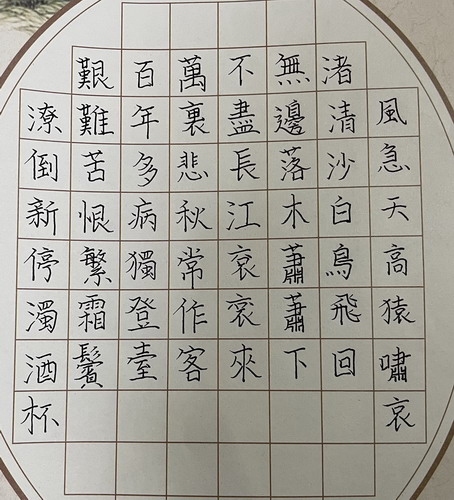 風急天高猿嘯哀
渚清沙白鳥飛回
無邊落木蕭蕭下
不盡長江袞袞來
萬裏悲秋常作客
百年多病獨登臺
艱難苦恨繁霜鬢
潦倒新停濁酒杯